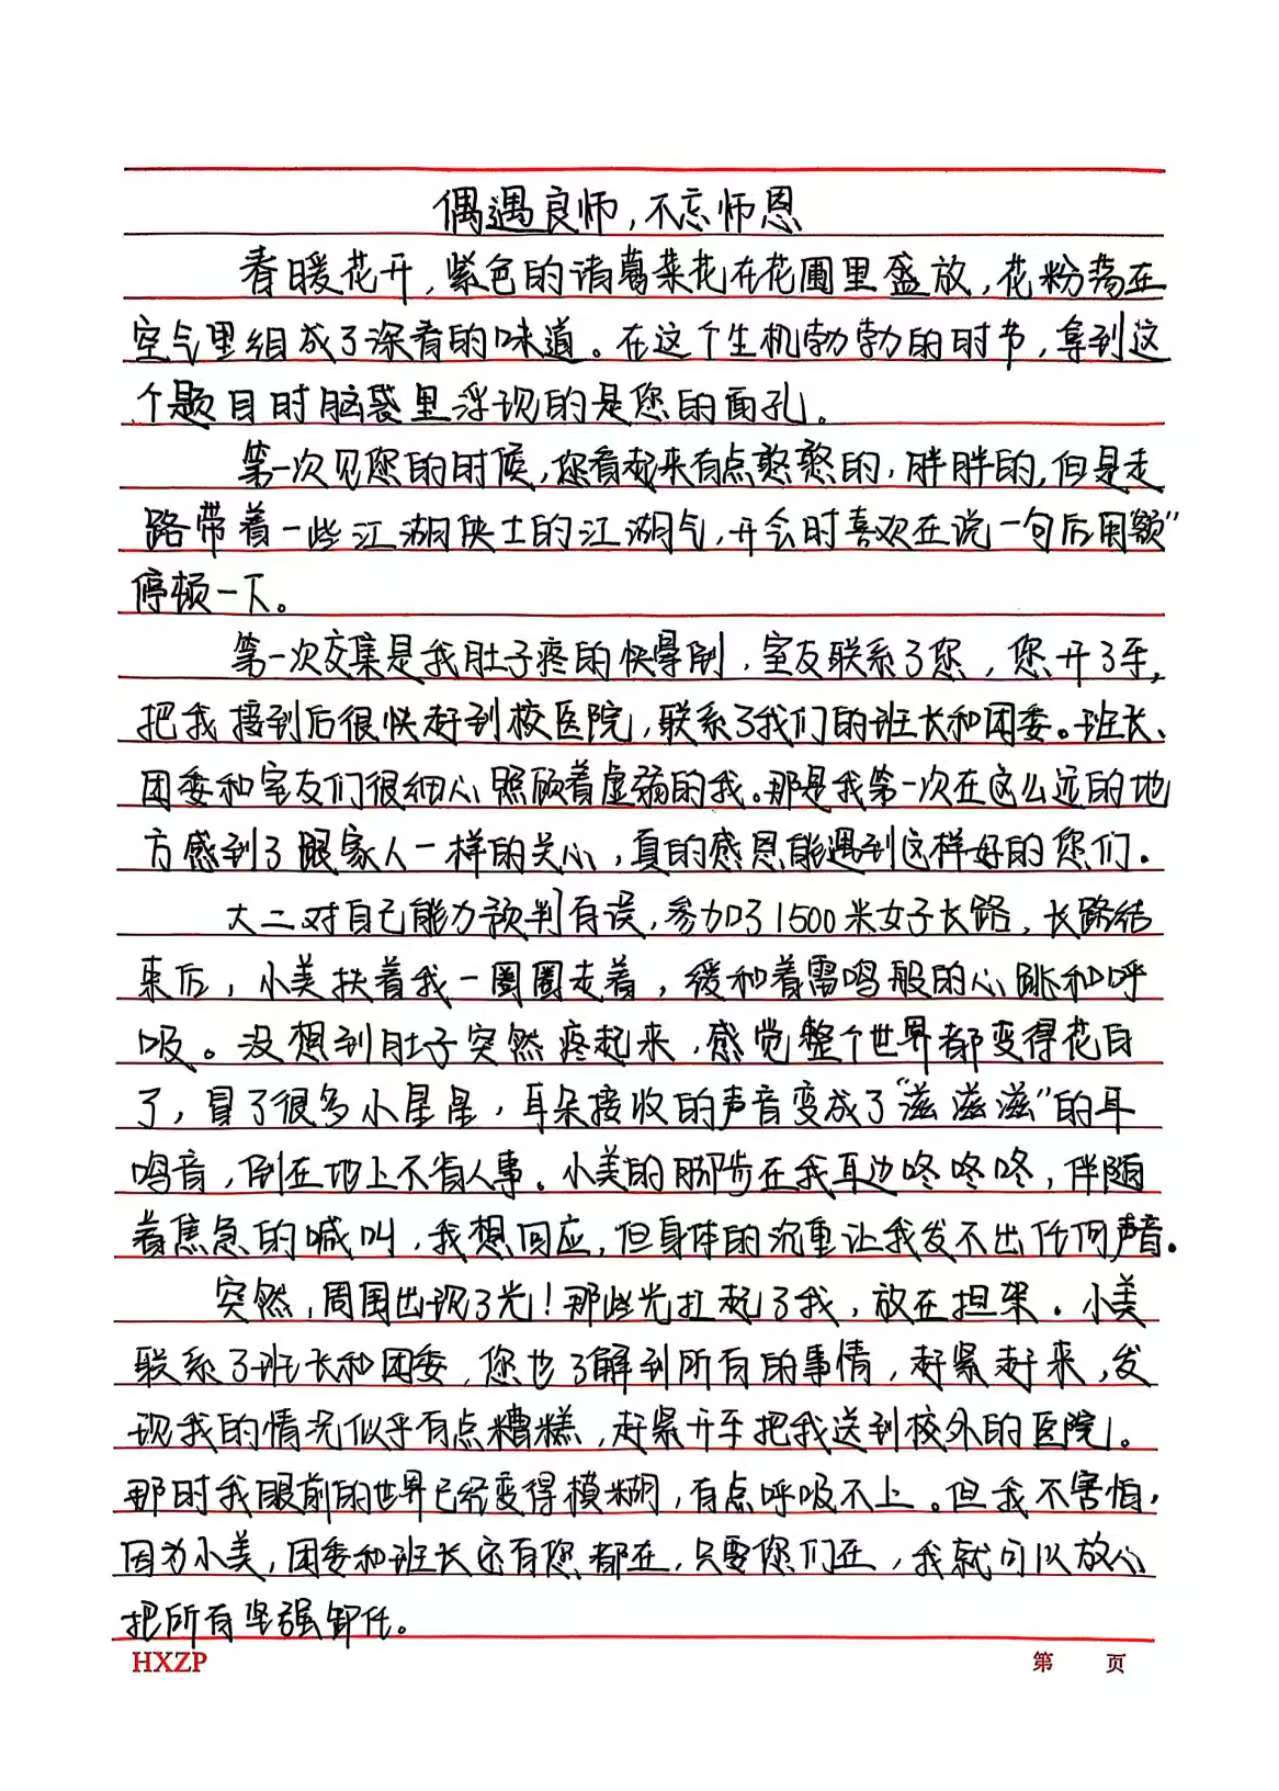 偶遇良师,不忘师恩
春暖花开,紫色的诸葛菜花在花圃里盛放,花粉荡在
空气里组成了深春的味道。在这个生机勃勃的时节,拿到这
个题目时脑袋里浮现的是您的面孔。
第一次见您的时候,您看起来有点憨憨的,胖胖的,但是走
路带着一些江湖侠士的江湖气,开会时喜欢在说一句后用“额”
停顿一下。
第一次交集是我肚子疼的快晕倒,室友联系了您,您开了车,
把我接到后很快赶到校医院,联系了我们的班长和团委。班长、
团委和室友们很细心照顾着虚弱的我。那是我第一次在这么远的地
方感到了跟家人一样的关心,真的感恩能遇到这样好的您们.
大二对自己能力预判有误,参加了1500米女子长跑,长跑结
束后,小美扶着我一圈圈走着,缓和着雷鸣般的心跳和呼
吸。没想到肚子突然疼起来,感觉整个世界都变得花白
了,冒了很多小星星,耳朵接收的声音变成了“滋滋滋”的耳
鸣音,倒在地上不省人事。小美的脚步在我耳边咚咚咚,伴随
着焦急的喊叫,我想回应,但身体的沉重让我发不出任何声音.
突然,周围出现了光!那些光扛起了我,放在担架.小美
联系了班长和团委,您也了解到所有的事情,赶紧赶来,发
现我的情况似乎有点糟糕,赶紧开车把我送到校外的医院。
那时我眼前的世界已经变得模糊,有点呼吸不上。但我不害怕,
因为小美,团委和班长还有您都在,只要您们在,我就可以放心
把所有坚强卸任。
HXZP
第 页